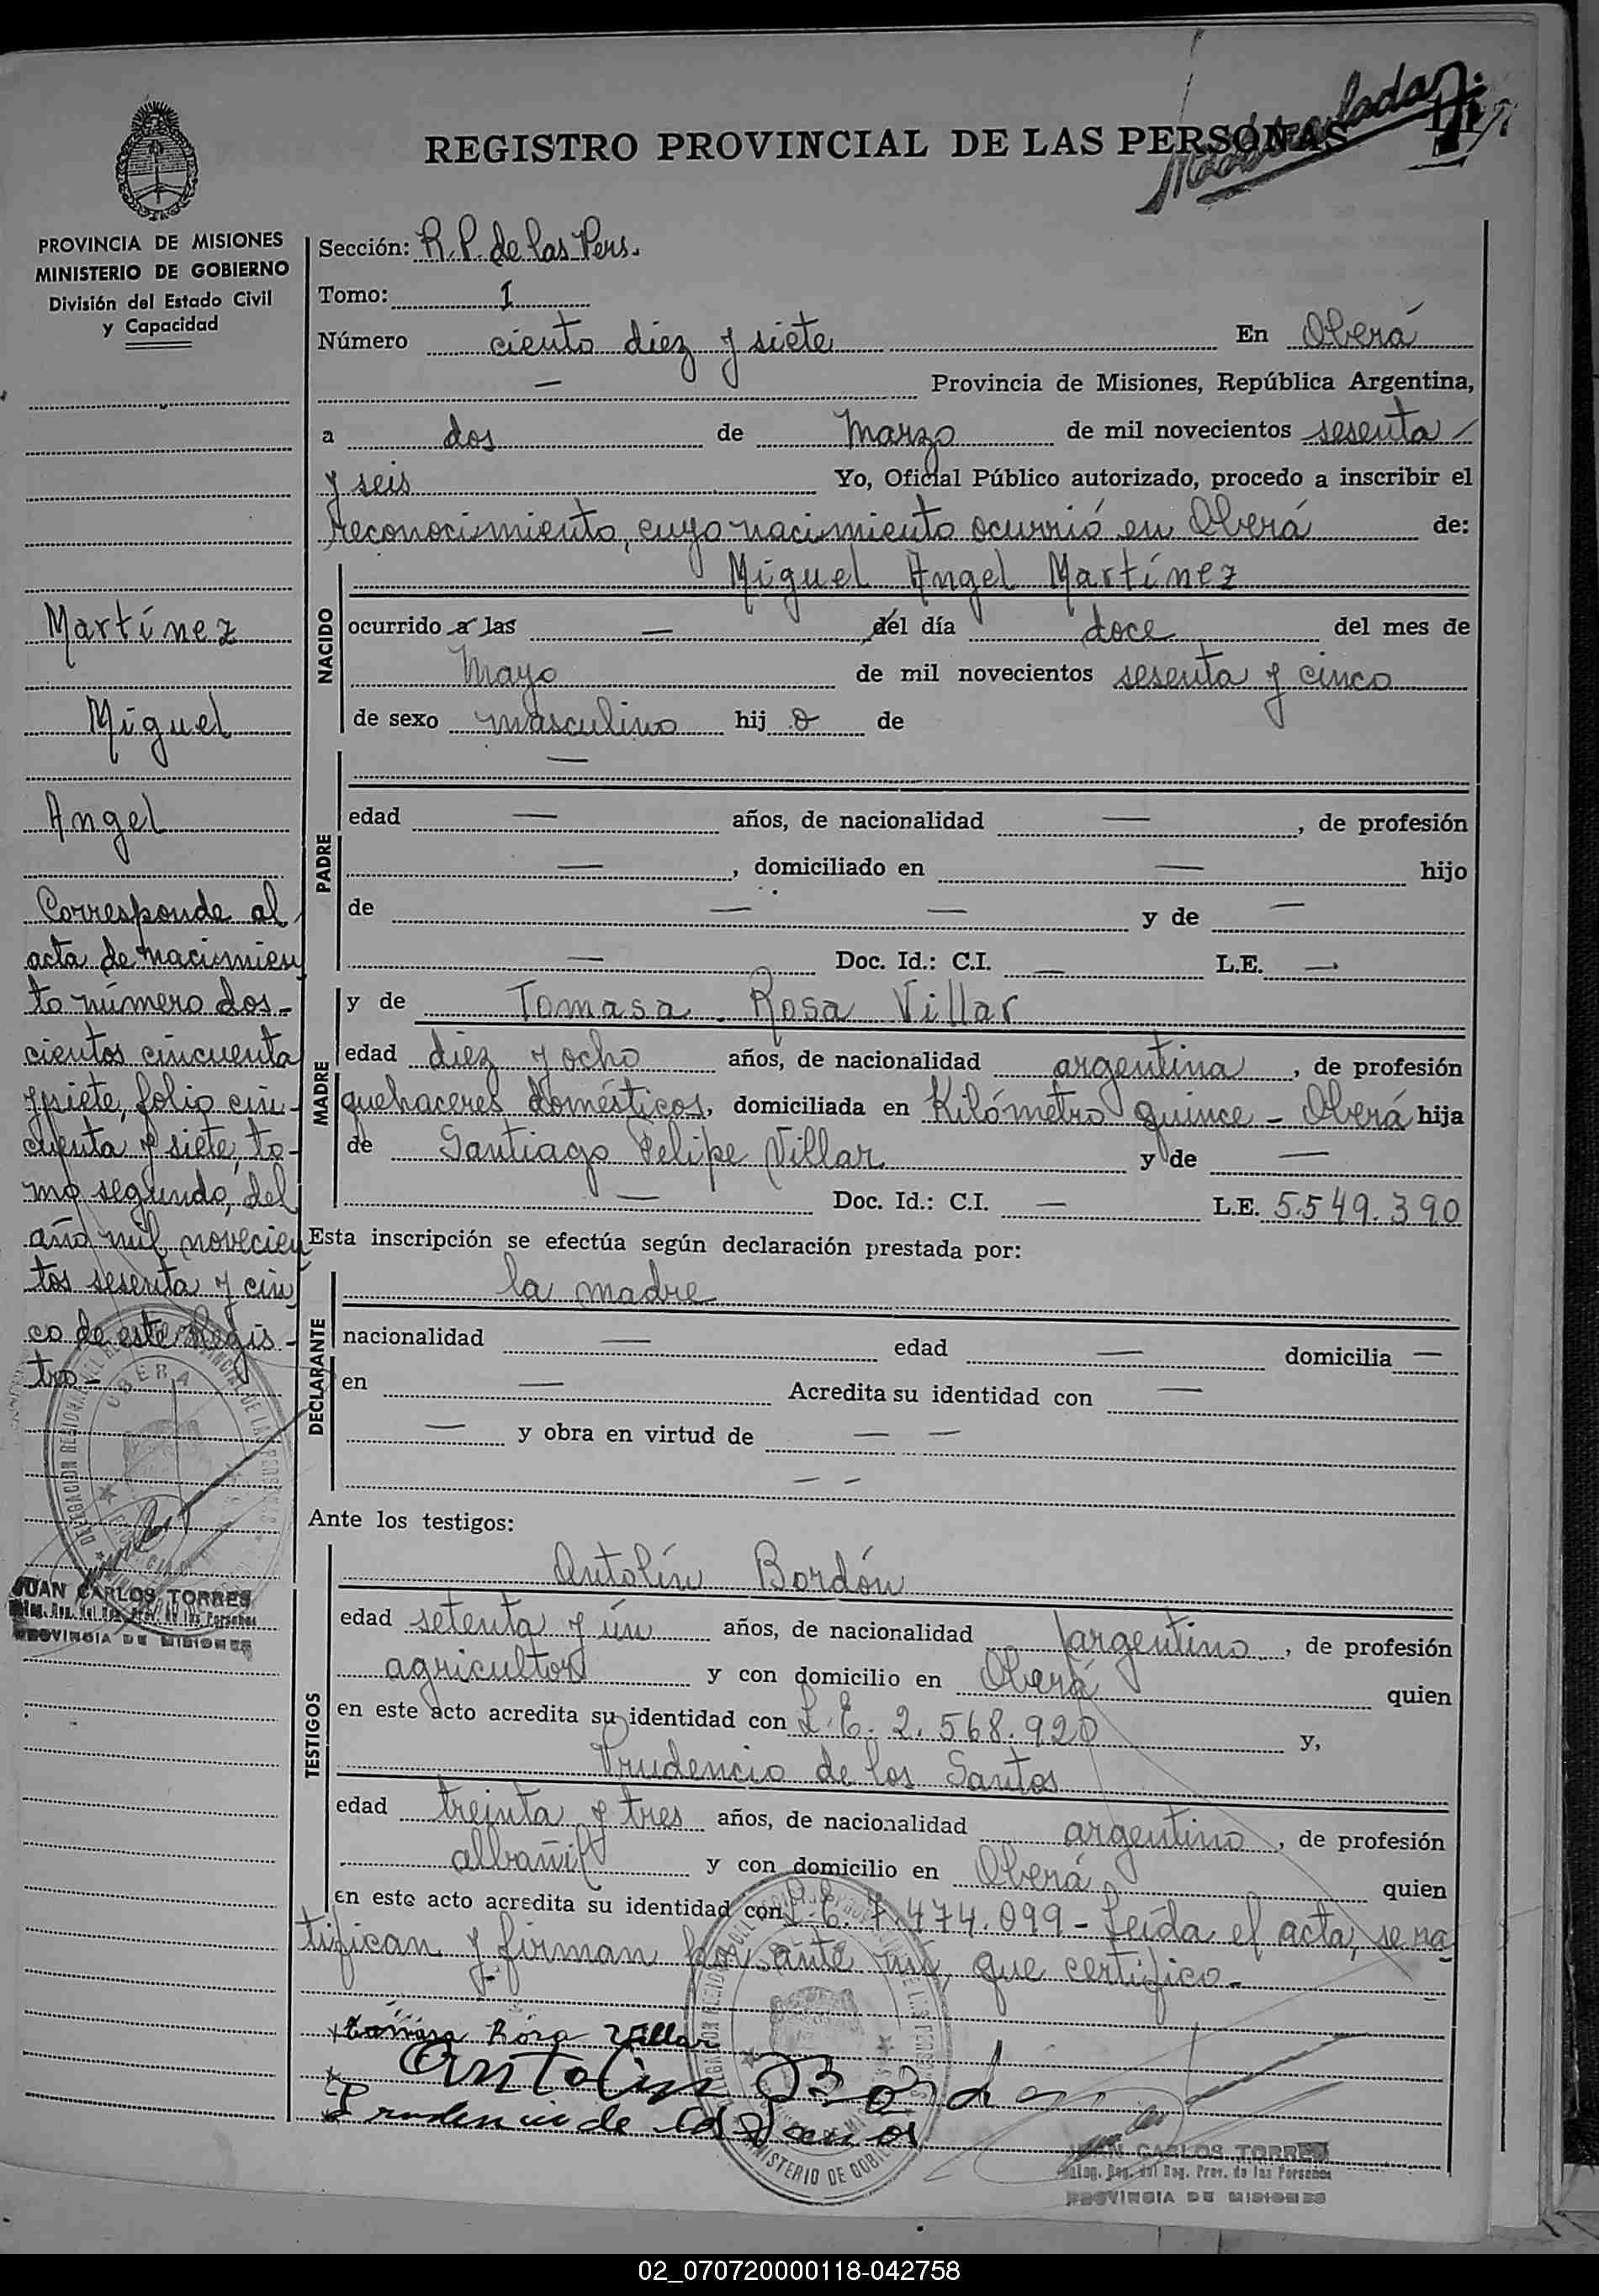 REGISTRO PROVINCIAL DE LAS PERSONAS
PROVINCIA DE MISIONES
MINISTERIO DE GOBIERNO
División del Estado Civil
y Capacidad
Martínez
Miguel
Angel
Corresponde al
acta de nacimien
to número dos-
cientos cincuenta
y siete, folio cin-
cuenta y siete, to-
mo segundo, del
año mil novecien
tos sesenta y cin
co de este Regis-
tro-
OBERA
JUAN CARLOS TORRES
PROVINCIA DE MISIONES
Sección: R. P. de las Pers.
Tomo: I
Número ciento diez y siete En Oberá
— Provincia de Misiones, República Argentina,
a dos de Marzo de mil novecientos sesenta
y seis Yo, Oficial Público autorizado, procedo a inscribir el
reconocimiento, cuyo nacimiento ocurrió en Oberá de:
NACIDO
Miguel Angel Martínez
ocurrido a las — del día doce del mes de
Mayo de mil novecientos sesenta y cinco
de sexo masculino hij o de
PADRE
—
edad — años, de nacionalidad — , de profesión
— , domiciliado en — hijo
de — — y de —
— Doc. Id.: C.I. — L.E. —
MADRE
y de Tomasa Rosa Villar
edad diez y ocho años, de nacionalidad argentina , de profesión
quehaceres domésticos, domiciliada en Kilómetro quince - Oberá hija
de Santiago Felipe Villar y de —
— Doc. Id.: C.I. — L.E. 5.549.390
Esta inscripción se efectúa según declaración prestada por:
DECLARANTE
la madre
nacionalidad — edad — domicilia —
en — Acredita su identidad con —
— y obra en virtud de — —
— —
Ante los testigos:
TESTIGOS
Antolín Bordón
edad setenta y ún años, de nacionalidad argentino , de profesión
agricultor y con domicilio en Oberá quien
en este acto acredita su identidad con L.E. 2.568.920 y,
Prudencio de los Santos
edad treinta y tres años, de nacionalidad argentino , de profesión
albañil y con domicilio en Oberá quien
en este acto acredita su identidad con L.E. 7.474.099 - Leída el acta, se ra
tifican y firman por ante mí, que certifico.-
tomasa Rosa Villar
Antolin Bordon
Prudencio de los Santos
MINISTERIO DE GOBIE
JUAN CARLOS TORRES
Reg. del Reg. Prov. de las Personas
PROVINCIA DE MISIONES
02_070720000118-042758